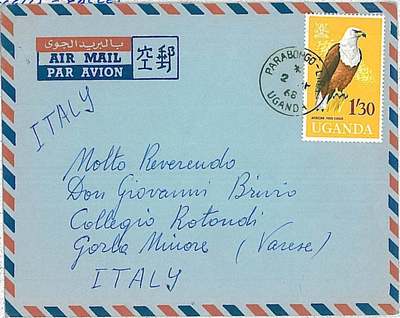 بالبريد الجوى
AIR MAIL
PAR AVION
空郵
PARABONGO
2
68
UGANDA
1'30
AFRICAN FISH EAGLE
UGANDA
ITALY
Molto Reverendo
Don Giovanni Brivio
Collegio Rotondi
Gorla Minore (Varese)
ITALY